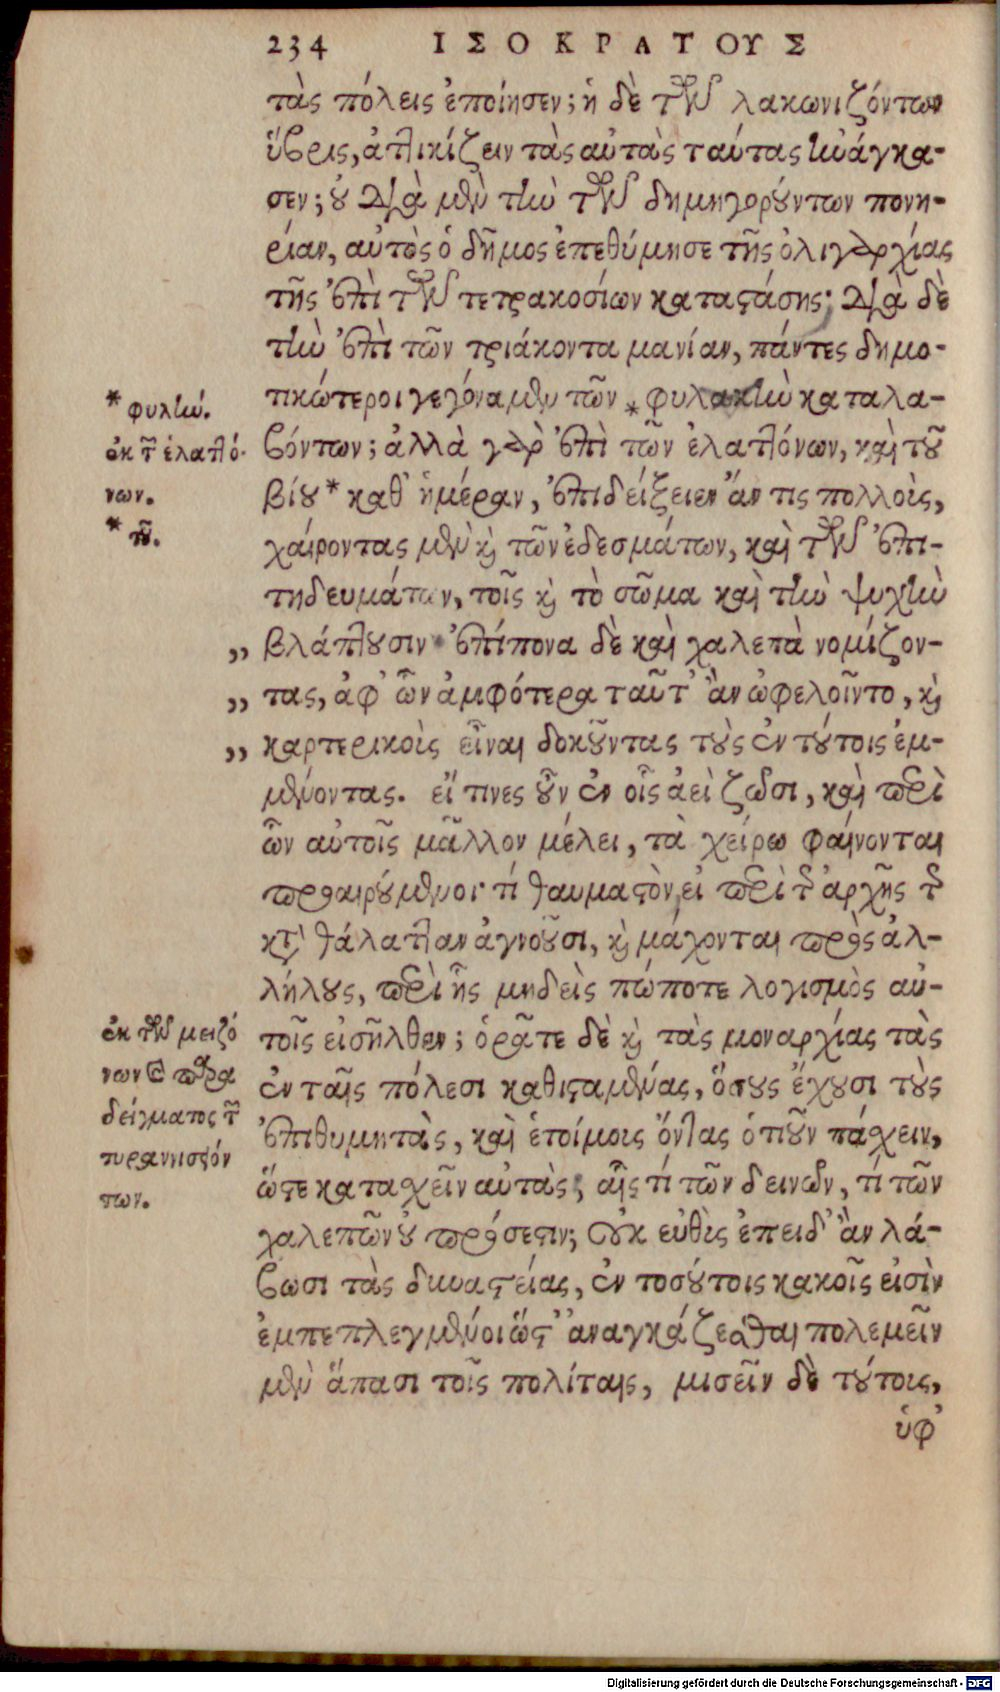 234 ΙΣΟΚΡΑΤΟΥΣ
τὰς πόλεις ἐποίησεν; ἡ δὲ τῶν λακωνιζόντων
ὕβρις, ἀττικίζειν τὰς αὐτὰς ταύτας ἠνάγκα-
σεν; οὐ διὰ μὲν τὴν τῶν δημηγορούντων πονη-
ρίαν, αὐτὸς ὁ δῆμος ἐπεθύμησε τῆς ὀλιγαρχίας
τῆς ἐπὶ τῶν τετρακοσίων καταστάσης; διὰ δὲ
τὴν ἐπὶ τῶν τριάκοντα μανίαν, πάντες δημο-
τικώτεροι γεγόναμεν τῶν * φυλακὴν καταλα-
* φυλὴν.
βόντων; ἀλλὰ γὰρ ἐπὶ τῶν ἐλαττόνων, καὶ τοῦ
ἐκ τῶν ἐλαττό-
βίου * καθ' ἡμέραν, ἐπιδείξειεν ἄν τις πολλοὺς,
νων.
* τοῦ.
χαίροντας μὲν καὶ τῶν ἐδεσμάτων, καὶ τῶν ἐπι-
τηδευμάτων, τοῖς καὶ τὸ σῶμα καὶ τὴν ψυχὴν
„ βλάπτουσιν· ἐπίπονα δὲ καὶ χαλεπὰ νομίζον-
„ τας, ἀφ' ὧν ἀμφότερα ταῦτ' ἂν ὠφελοῖντο, καὶ
„ καρτερικοὺς εἶναι δοκοῦντας τοὺς ἐν τούτοις ἐμ-
μένοντας. εἴ τινες οὖν ἐν οἷς ἀεὶ ζῶσι, καὶ περὶ
ὧν αὐτοῖς μᾶλλον μέλει, τὰ χείρω φαίνονται
προαιρούμενοι· τί θαυμαστὸν, εἰ περὶ τῆς ἀρχῆς τῆς
κατὰ θάλατταν ἀγνοοῦσι, καὶ μάχονται πρὸς ἀλ-
λήλους, περὶ ἧς μηδεὶς πώποτε λογισμὸς αὐ-
τοῖς εἰσῆλθεν; ὁρᾶτε δὲ καὶ τὰς μοναρχίας τὰς
ἐκ τῶν μειζό
ἐν ταῖς πόλεσι καθισταμένας, ὅσους ἔχουσι τοὺς
νων καὶ παρα
δείγματος τῶν
ἐπιθυμητὰς, καὶ ἑτοίμοις ὄντας ὁτιοῦν πάσχειν,
τυραννησάν
ὥστε κατασχεῖν αὐτὰς; αἷς τί τῶν δεινῶν, τί τῶν
των.
χαλεπῶν οὐ πρόσεστιν; Οὐκ εὐθὺς ἐπειδ' ἂν λά-
βωσι τὰς δυναστείας, ἐν τοσούτοις κακοῖς εἰσὶν
ἐμπεπλεγμένοι ὥστ' ἀναγκάζεσθαι πολεμεῖν
μὲν ἅπασι τοῖς πολίταις, μισεῖν δὲ τούτοις,
ὑφ'
Digitalisierung gefördert durch die Deutsche Forschungsgemeinschaft - DFG